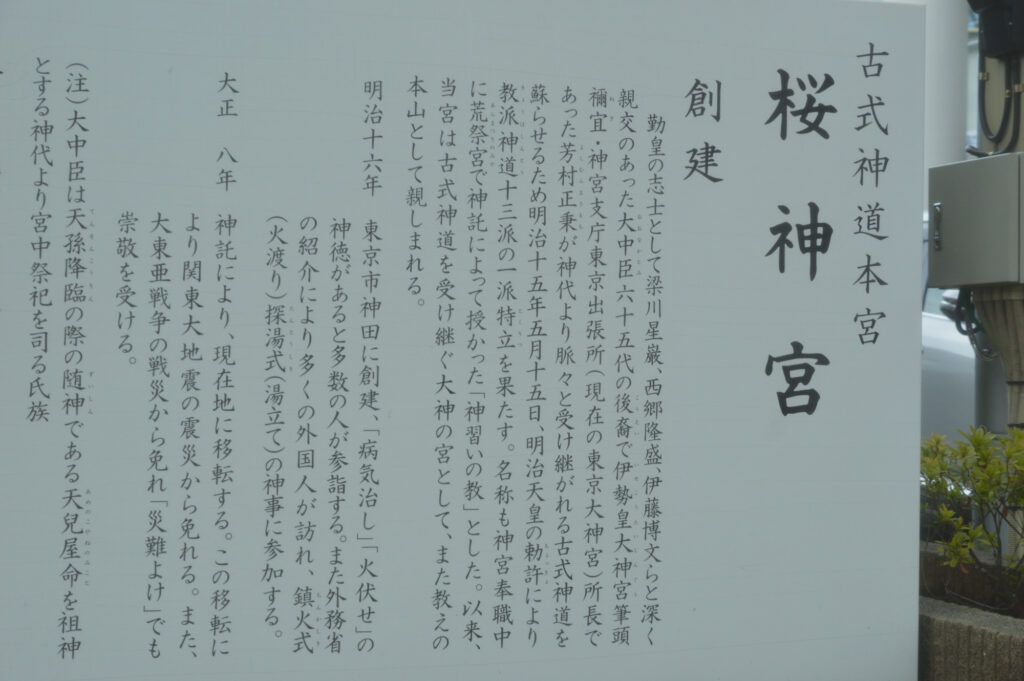 古式神道本宮
桜神宮
創建
勤皇の志士として梁川星巌、西郷隆盛、伊藤博文らと深く
親交のあった大中臣六十五代の後裔で伊勢皇大神宮筆頭
禰宜・神宮支庁東京出張所(現在の東京大神宮)所長で
あった芳村正秉が神代より脈々と受け継がれる古式神道を
蘇らせるため明治十五年五月十五日、明治天皇の勅許により
教派神道十三派の一派特立を果たす。名称も神宮奉職中
に荒祭宮で神託によって授かった「神習いの教」とした。以来、
当宮は古式神道を受け継ぐ大神の宮として、また教えの
本山として親しまれる。
明治十六年 東京市神田に創建、「病気治し」「火伏せ」の
神徳があると多数の人が参詣する。また外務省
の紹介により多くの外国人が訪れ、鎮火式
(火渡り)探湯式(湯立て)の神事に参加する。
大正 八年 神託により、現在地に移転する。この移転に
より関東大地震の震災から免れる。また、
大東亜戦争の戦災から免れ「災難よけ」でも
崇敬を受ける。
(注)大中臣は天孫降臨の際の随神である天兒屋命を祖神
とする神代より宮中祭祀を司る氏族